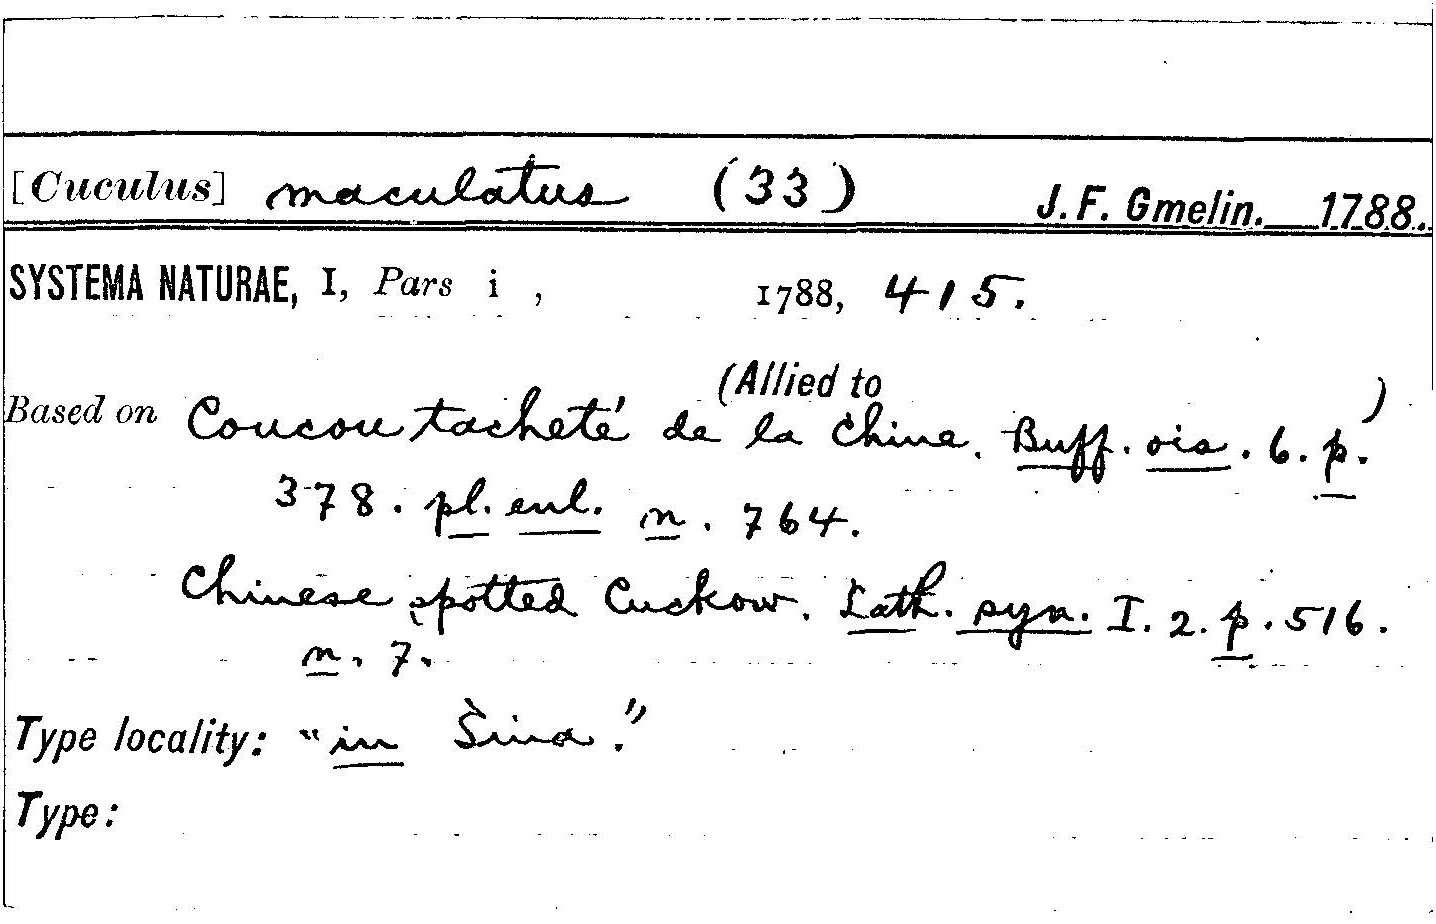 [Cuculus] maculatus (33) J. F. Gmelin. 1788.
SYSTEMA NATURAE, I, Pars i , 1788, 415.
(Allied to )
Based on Coucou tacheté de la Chine. Buff. ois. 6. p.
378. pl. enl. n. 764.
Chinese spotted Cuckow. Lath. syn. I. 2. p. 516.
n. 7.
Type locality: "in Sina."
Type: